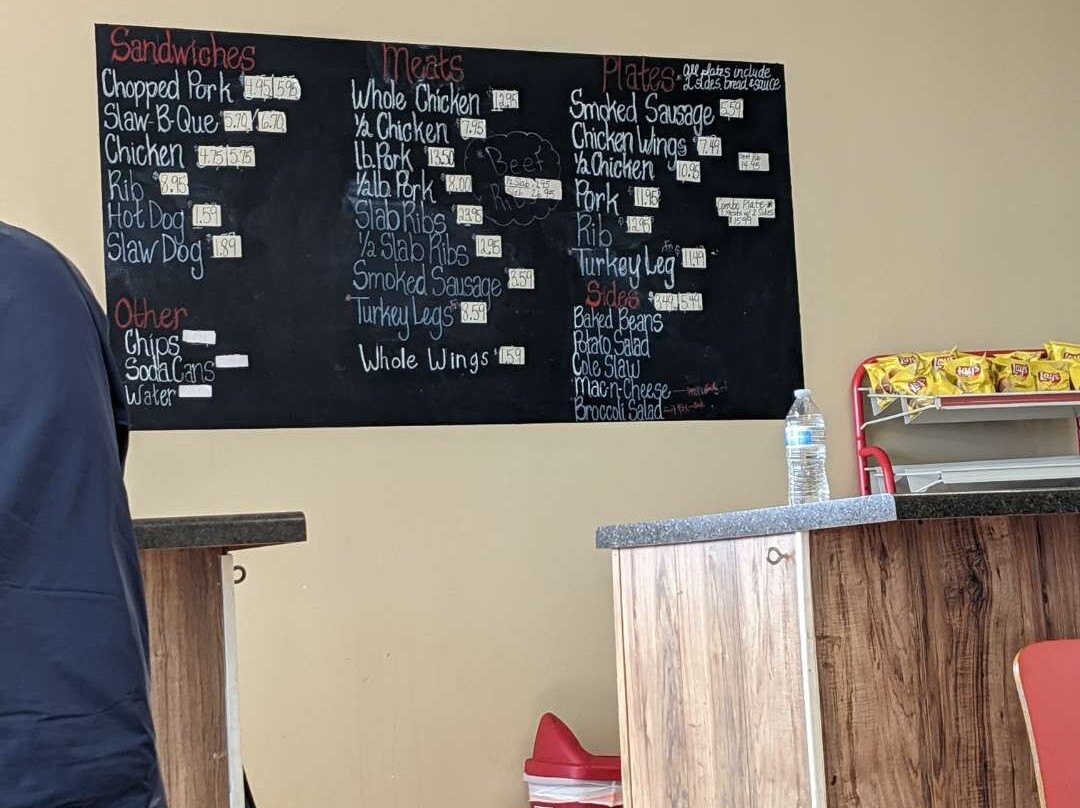 Sandwiches
Chopped Pork 4.95 5.95
Slaw-B-Que 5.70 6.70
Chicken 4.75 5.75
Rib $8.95
Hot Dog 1.59
Slaw Dog 1.89
Other
Chips
Soda Cans
Water
Meats
Whole Chicken 12.95
½ Chicken 7.95
lb. Pork 13.50
½ lb. Pork 8.00
Slab Ribs 23.95
½ Slab Ribs 12.95
Smoked Sausage 3.59
Turkey Legs 8.59
Whole Wings 1.59
Beef
Plates
all plates include
2 sides, bread & sauce
Smoked Sausage 5.59
Chicken Wings $7.49
½ Chicken 10.95
Pork 11.95
Rib $12.95
Turkey Leg 11.49
Beef Rib
14.95
Combo Plate
Meats w/ 2 Sides
$15.99
Sides $3.49 5.49
Baked Beans
Potato Salad
Cole Slaw
Mac-n-Cheese
Broccoli Salad
Lay's
Lay's
Lay's